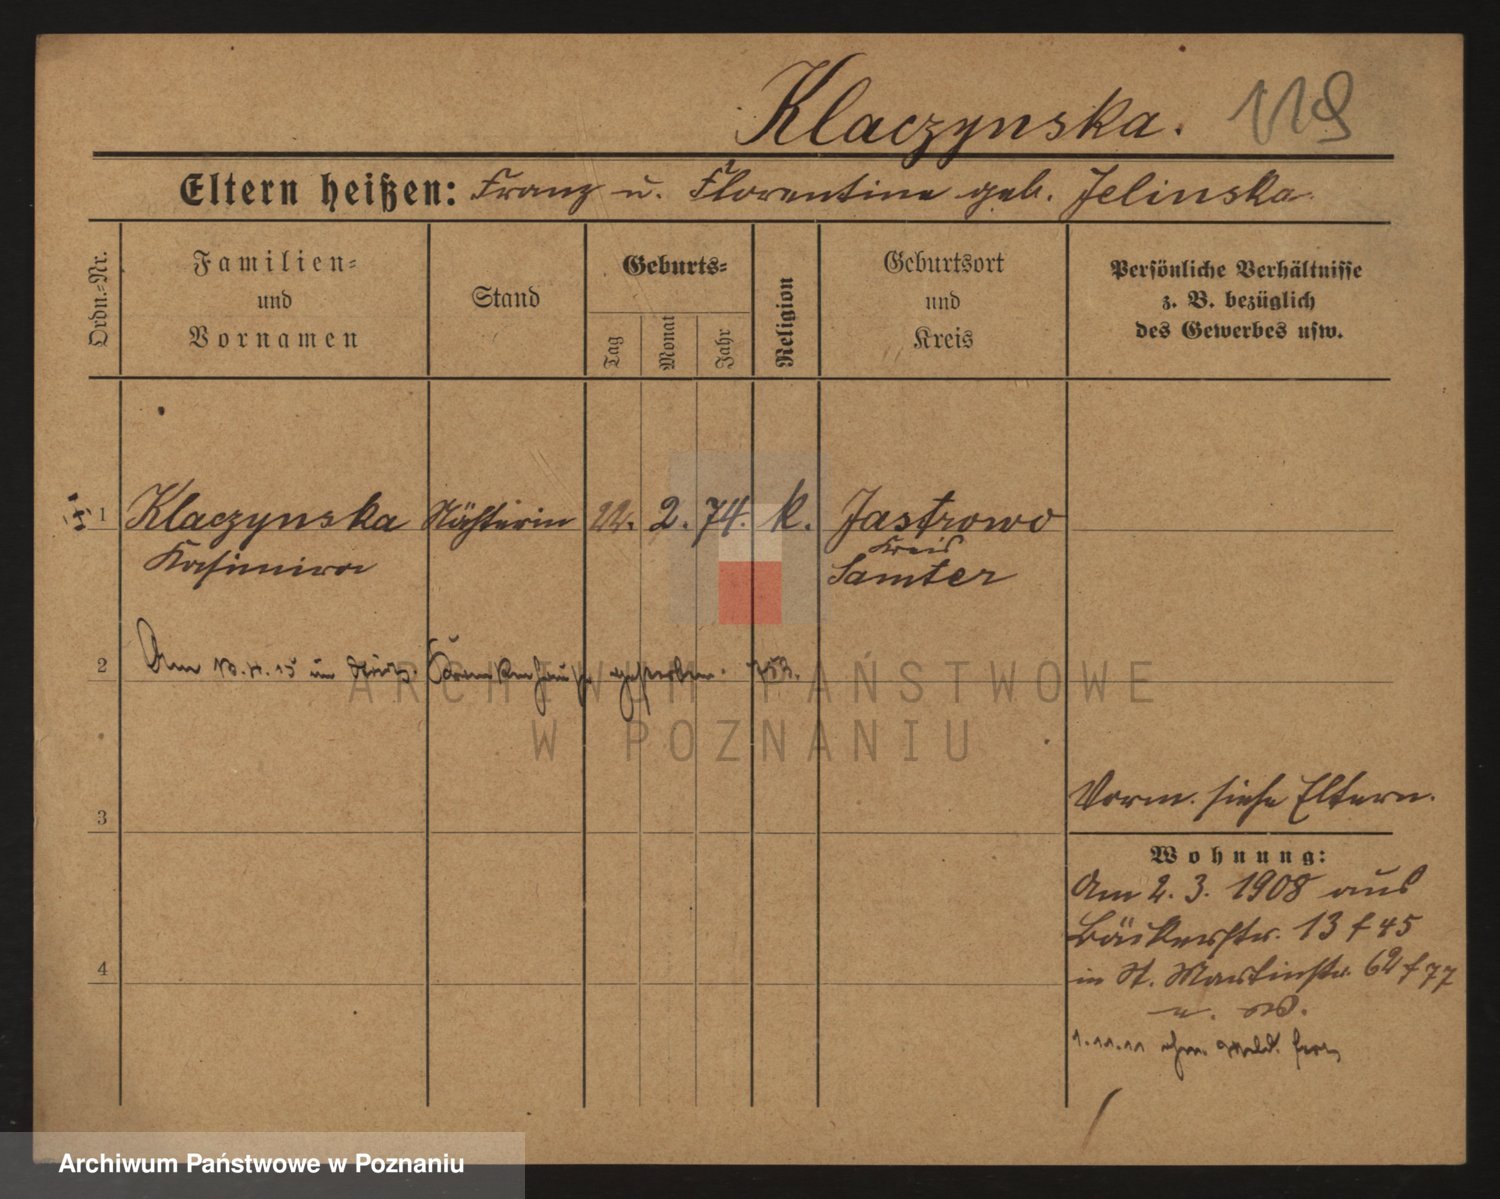 Klaczynska. 119
Eltern heißen: Franz u. Florentine geb. Jelinska
Ordn.-Nr.
Familien-
und
Vornamen
Stand
Geburts-
Tag
Monat
Jahr
Religion
Geburtsort
und
Kreis
Persönliche Verhältnisse
z. B. bezüglich
des Gewerbes usw.
1 Klaczynska Nähterin 22. 2. 74. k. Jastrowo
Kasimira Kreis
Samter
2 Am im Städt. Krankenhause gestorben.
ARCHIWUM PAŃSTWOWE
W POZNANIU
Vorm. siehe Eltern.
3
Wohnung:
Am 2. 3. 1908 aus
Bäckerstr. 13 f 45
4 in St. Martinstr. 62 f 77
1.11.11
Archiwum Państwowe w Poznaniu